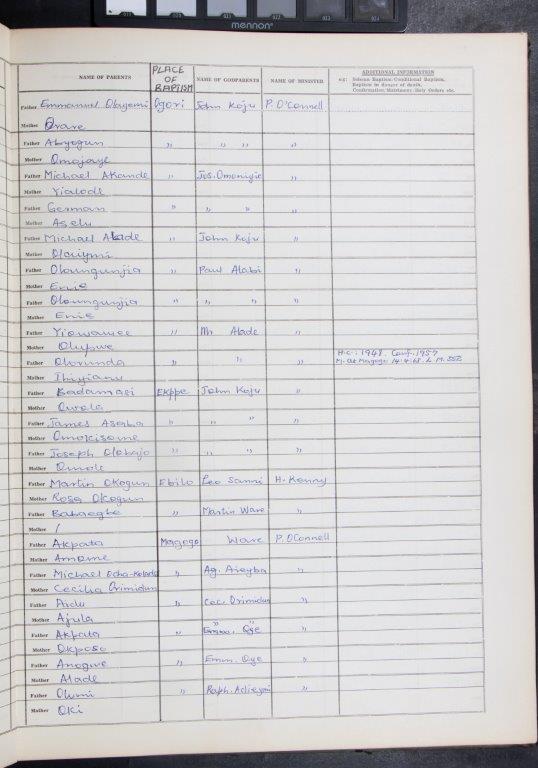 mennon
NAME OF PARENTS PLACE OF BAPTISM NAME OF GODPARENTS NAME OF MINISTER ADDITIONAL INFORMATION
eg: Solemn Baptism: Conditional Baptism,
Baptism in danger of death,
Confirmation, Matrimony, Holy Orders etc.
Father Emmanuel Obayemi Ogori John Koju P. O'Connell
Mother Orare
Father Abyogun " " " "
Mother Omojaye
Father Michael Akande " Jos. Omoniyie "
Mother Yialode
Father German " " " "
Mother Aselu
Father Michael Alade " John Koju "
Mother Olaiymi
Father Oloungunjia " Paul Alabi "
Mother Enie
Father Oloungunjia " " " "
Mother Enie
Father Yiowamee " Mr Alade "
Mother Olufue
H.C.: 1948. Conf. 1957
Father Olorunda " " " M. at Magogo 14.4.68. L.M.
Mother Ihiyianu
Father Badamasi Ekppe John Koju "
Mother Owole
Father James Asaba " " " "
Mother Omokisome
Father Joseph Olobajo " " " "
Mother Omole
Father Martin Okogun Ebilo Leo Sanni H. Kenny
Mother Rosa Okogun
Father Babaegbe " Martin Ware "
Mother /
Father Akpata Magogo Ware P. O'Connell
Mother Amome
Father Michael Ocha-Kolado " Ag. Aieyba "
Mother Cecilia Orimidun
Father Aidu " Cec. Orimidun "
Mother Ajula
Father Akpata " Oye "
Mother Okposo
Father Anogwe " Emm. Oye "
Mother Alade
Father Olumi " Raph. Adieyemi "
Mother Oki